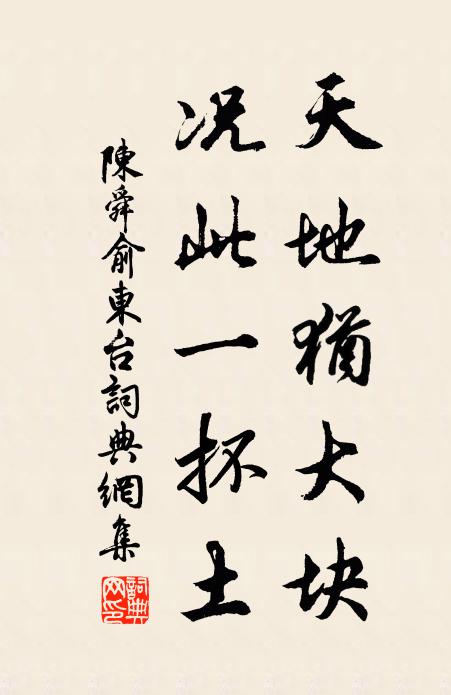 天地猶大块
况此一抔土
陳舜俞東台詞典網集
詞典网印